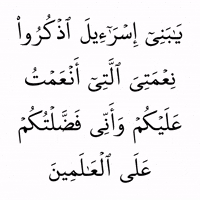 يَٰبَنِىٓ إِسْرَٰٓءِيلَ ٱذْكُرُوا۟
نِعْمَتِىَ ٱلَّتِىٓ أَنْعَمْتُ
عَلَيْكُمْ وَأَنِّى فَضَّلْتُكُمْ
عَلَى ٱلْعَٰلَمِينَ